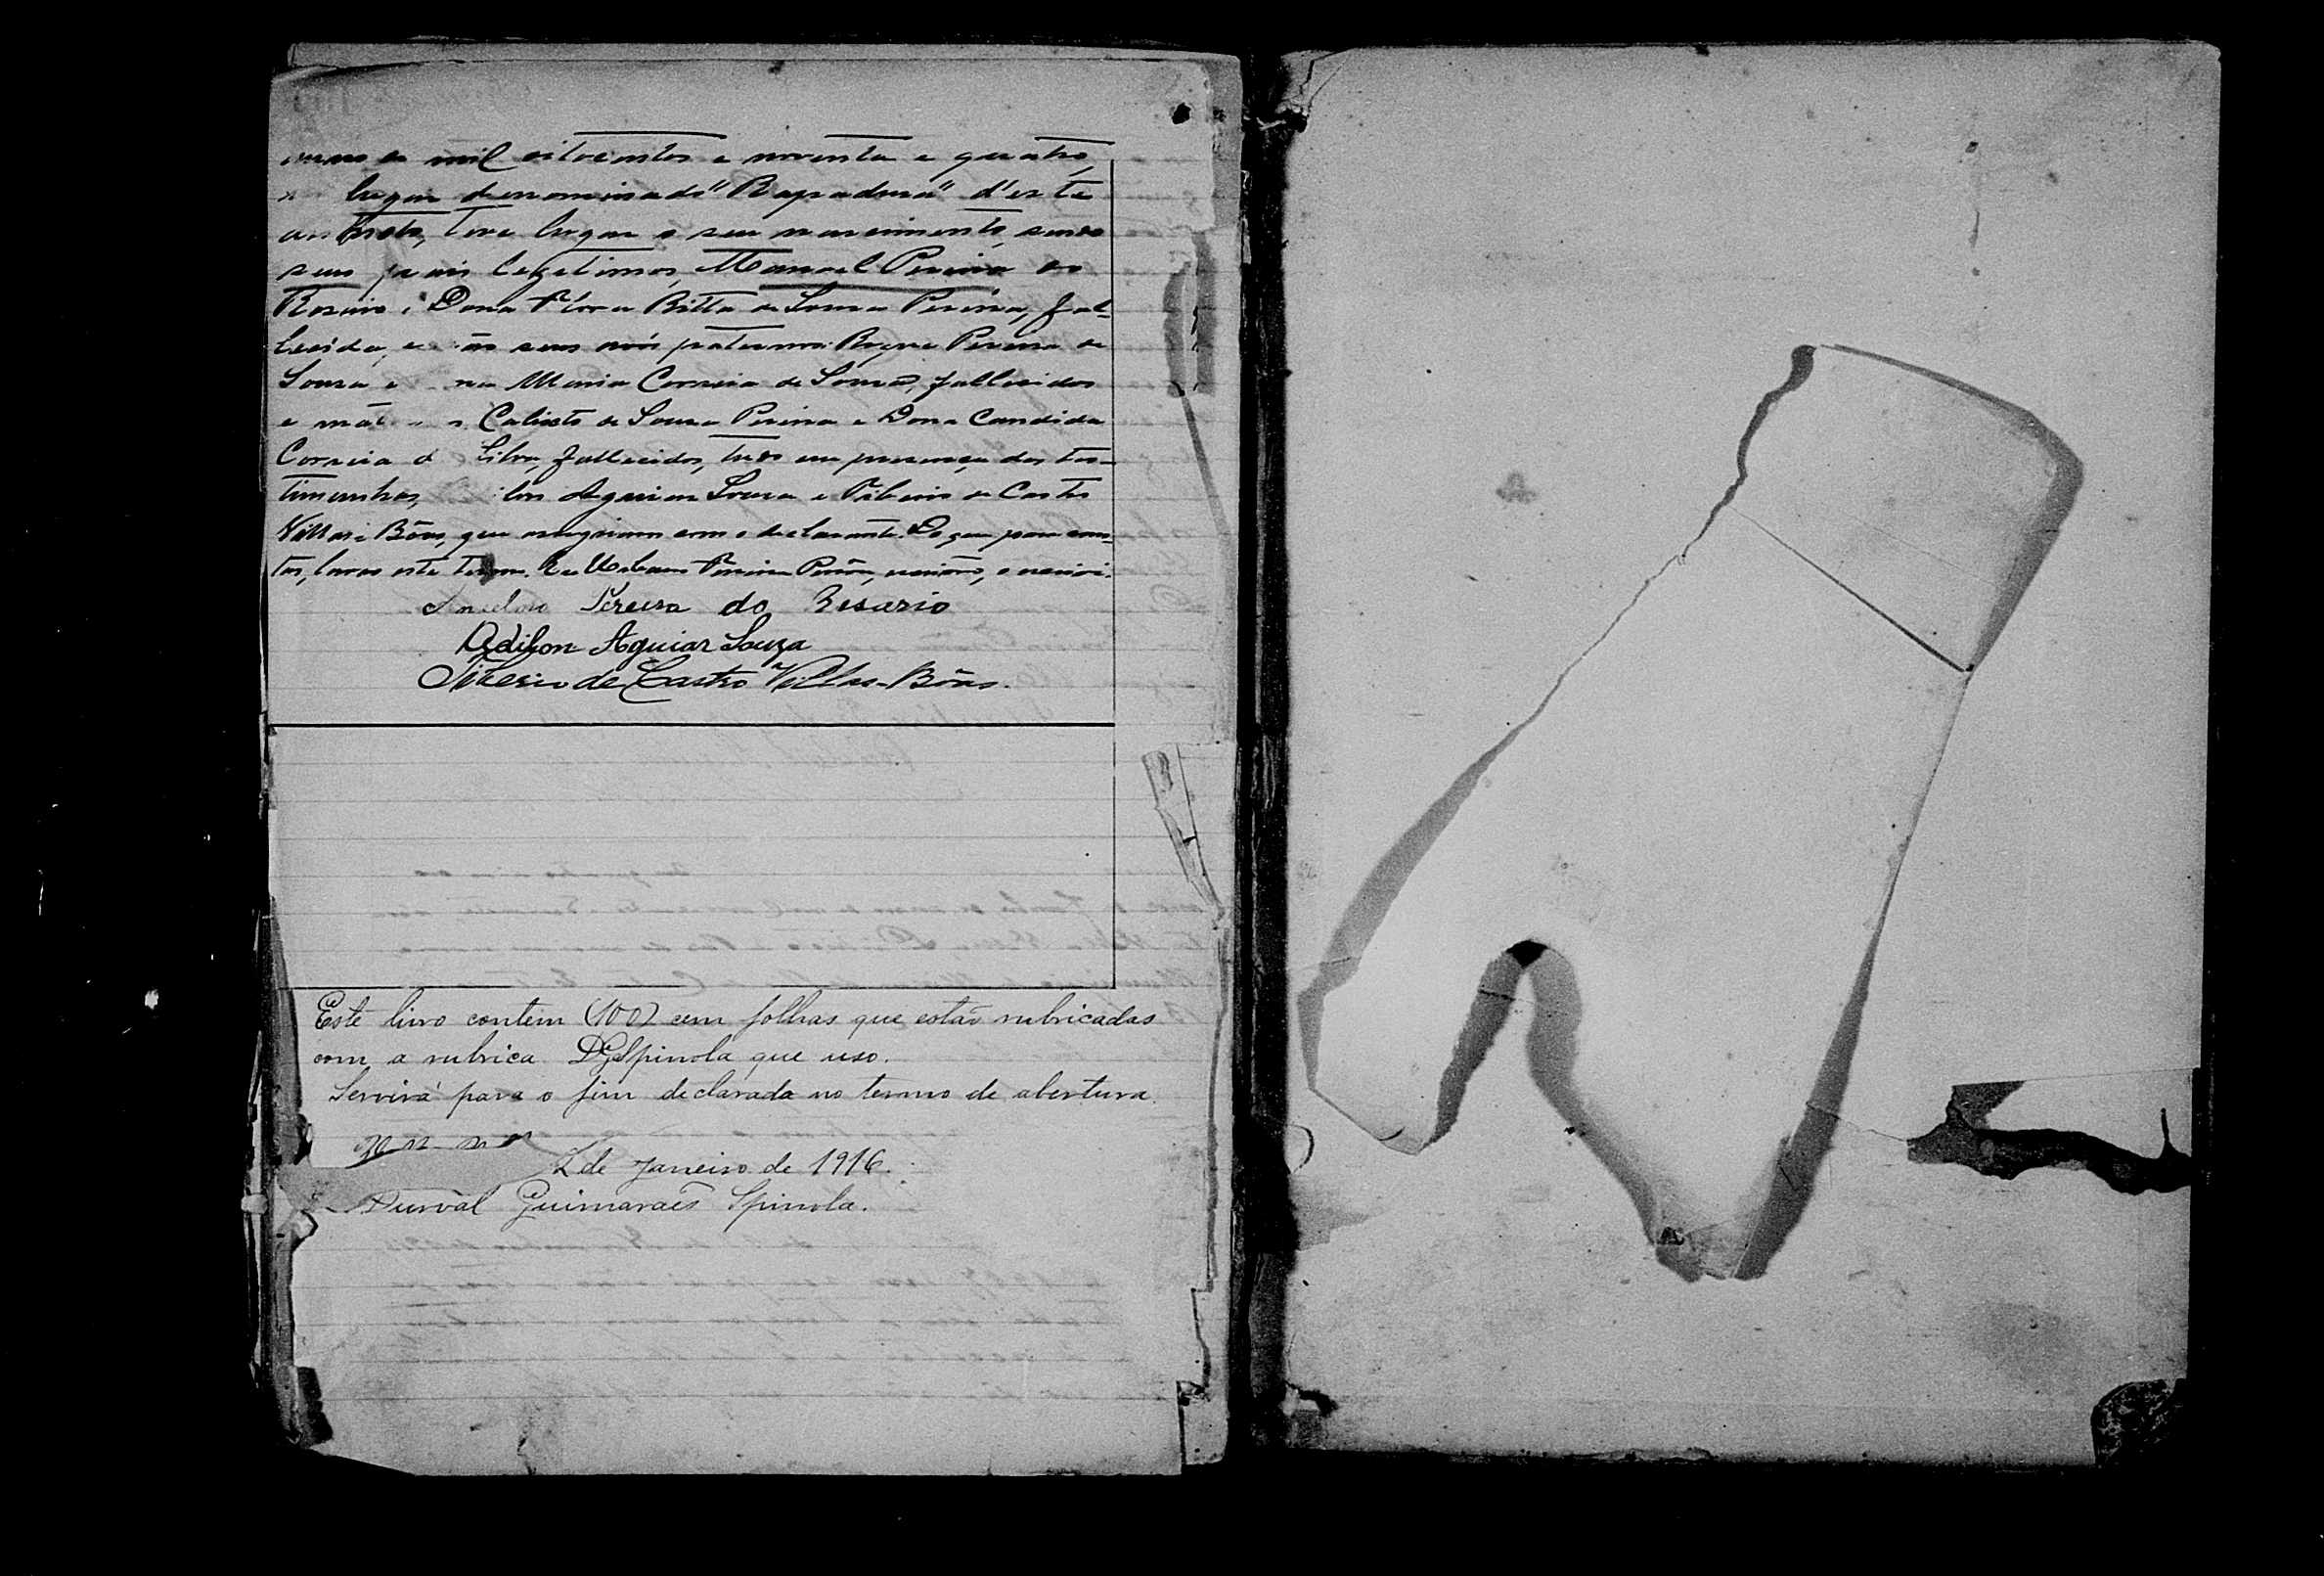 mil oitocentos e noventa e quatro,
lugar denominado "Rapadura" d'este
teve lugar o seu nascimento, sendo
seus paes legitimos, Manoel Pereira do
Rosario e Dona Flora Ritta de Souza Pereira, fal-
lecida, e seus avós paternos: Roque Pereira de
Souza e Maria Correia de Souza, fallecidos
e Calixto de Souza Pereira e Dona Candida
Correia d Silva, fallecidos, tudo em presença das tes-
timunhas, Aguiar Souza e Tiberio de Castro
Villas-Bôas, que assignam com o declarante. Do que para cons-
tar, lavro este termo. Eu escrivão, o escrevi.
Pereira do Rosario
Odilon Aguiar Souza
Tiberio de Castro Villas-Bôas.
Este livro contem (100) cem folhas que estão rubricadas
com a rubrica DGSpinola que uso.
Servirá para o fim declarada no termo de abertura.
2 de Janeiro de 1916.
Durval Guimarães Spinola.